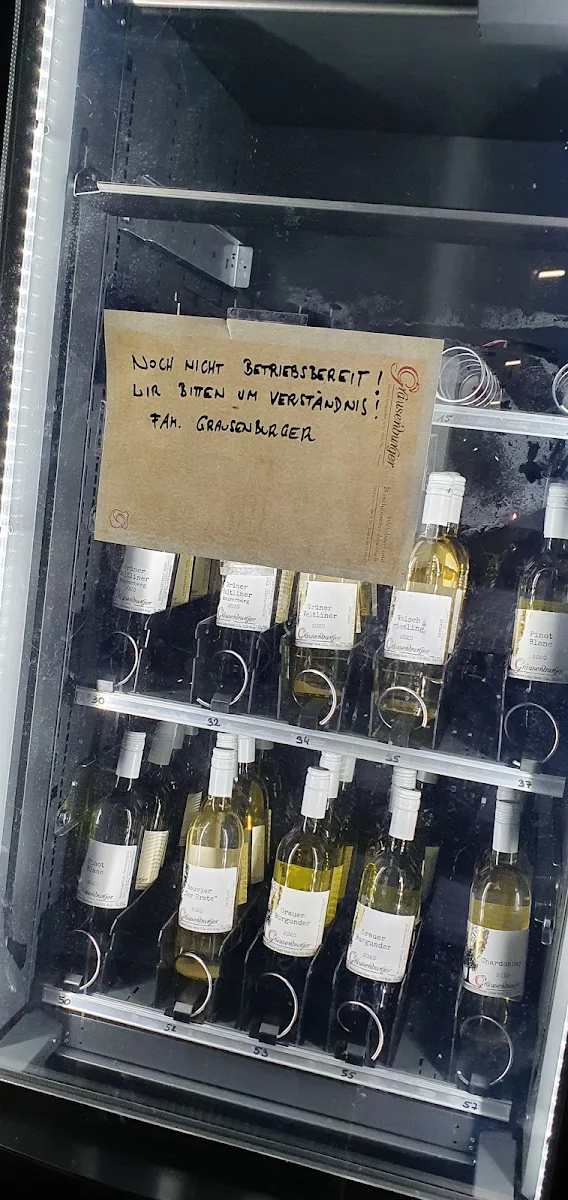 NOCH NICHT BETRIEBSBEREIT!
WIR BITTEN UM VERSTÄNDNIS!
FAM. GRAUSENBURGER
Grausenburger
15
Grüner
Veltliner
2020
Grausenburger
Grüner
Veltliner
2020
Grausenburger
Grüner
Veltliner
2020
Grausenburger
Welsch
riesling
2020
Grausenburger
Pinot
Blanc
2020
Grausenburger
30
32
34
35
37
Pinot
Blanc
Grausenburger
Bouvier
"Der Erste"
2020
Grausenburger
Grauer
Burgunder
2020
Grausenburger
Grauer
Burgunder
2020
Grausenburger
Chardonnay
Grausenburger
50
52
53
55
57